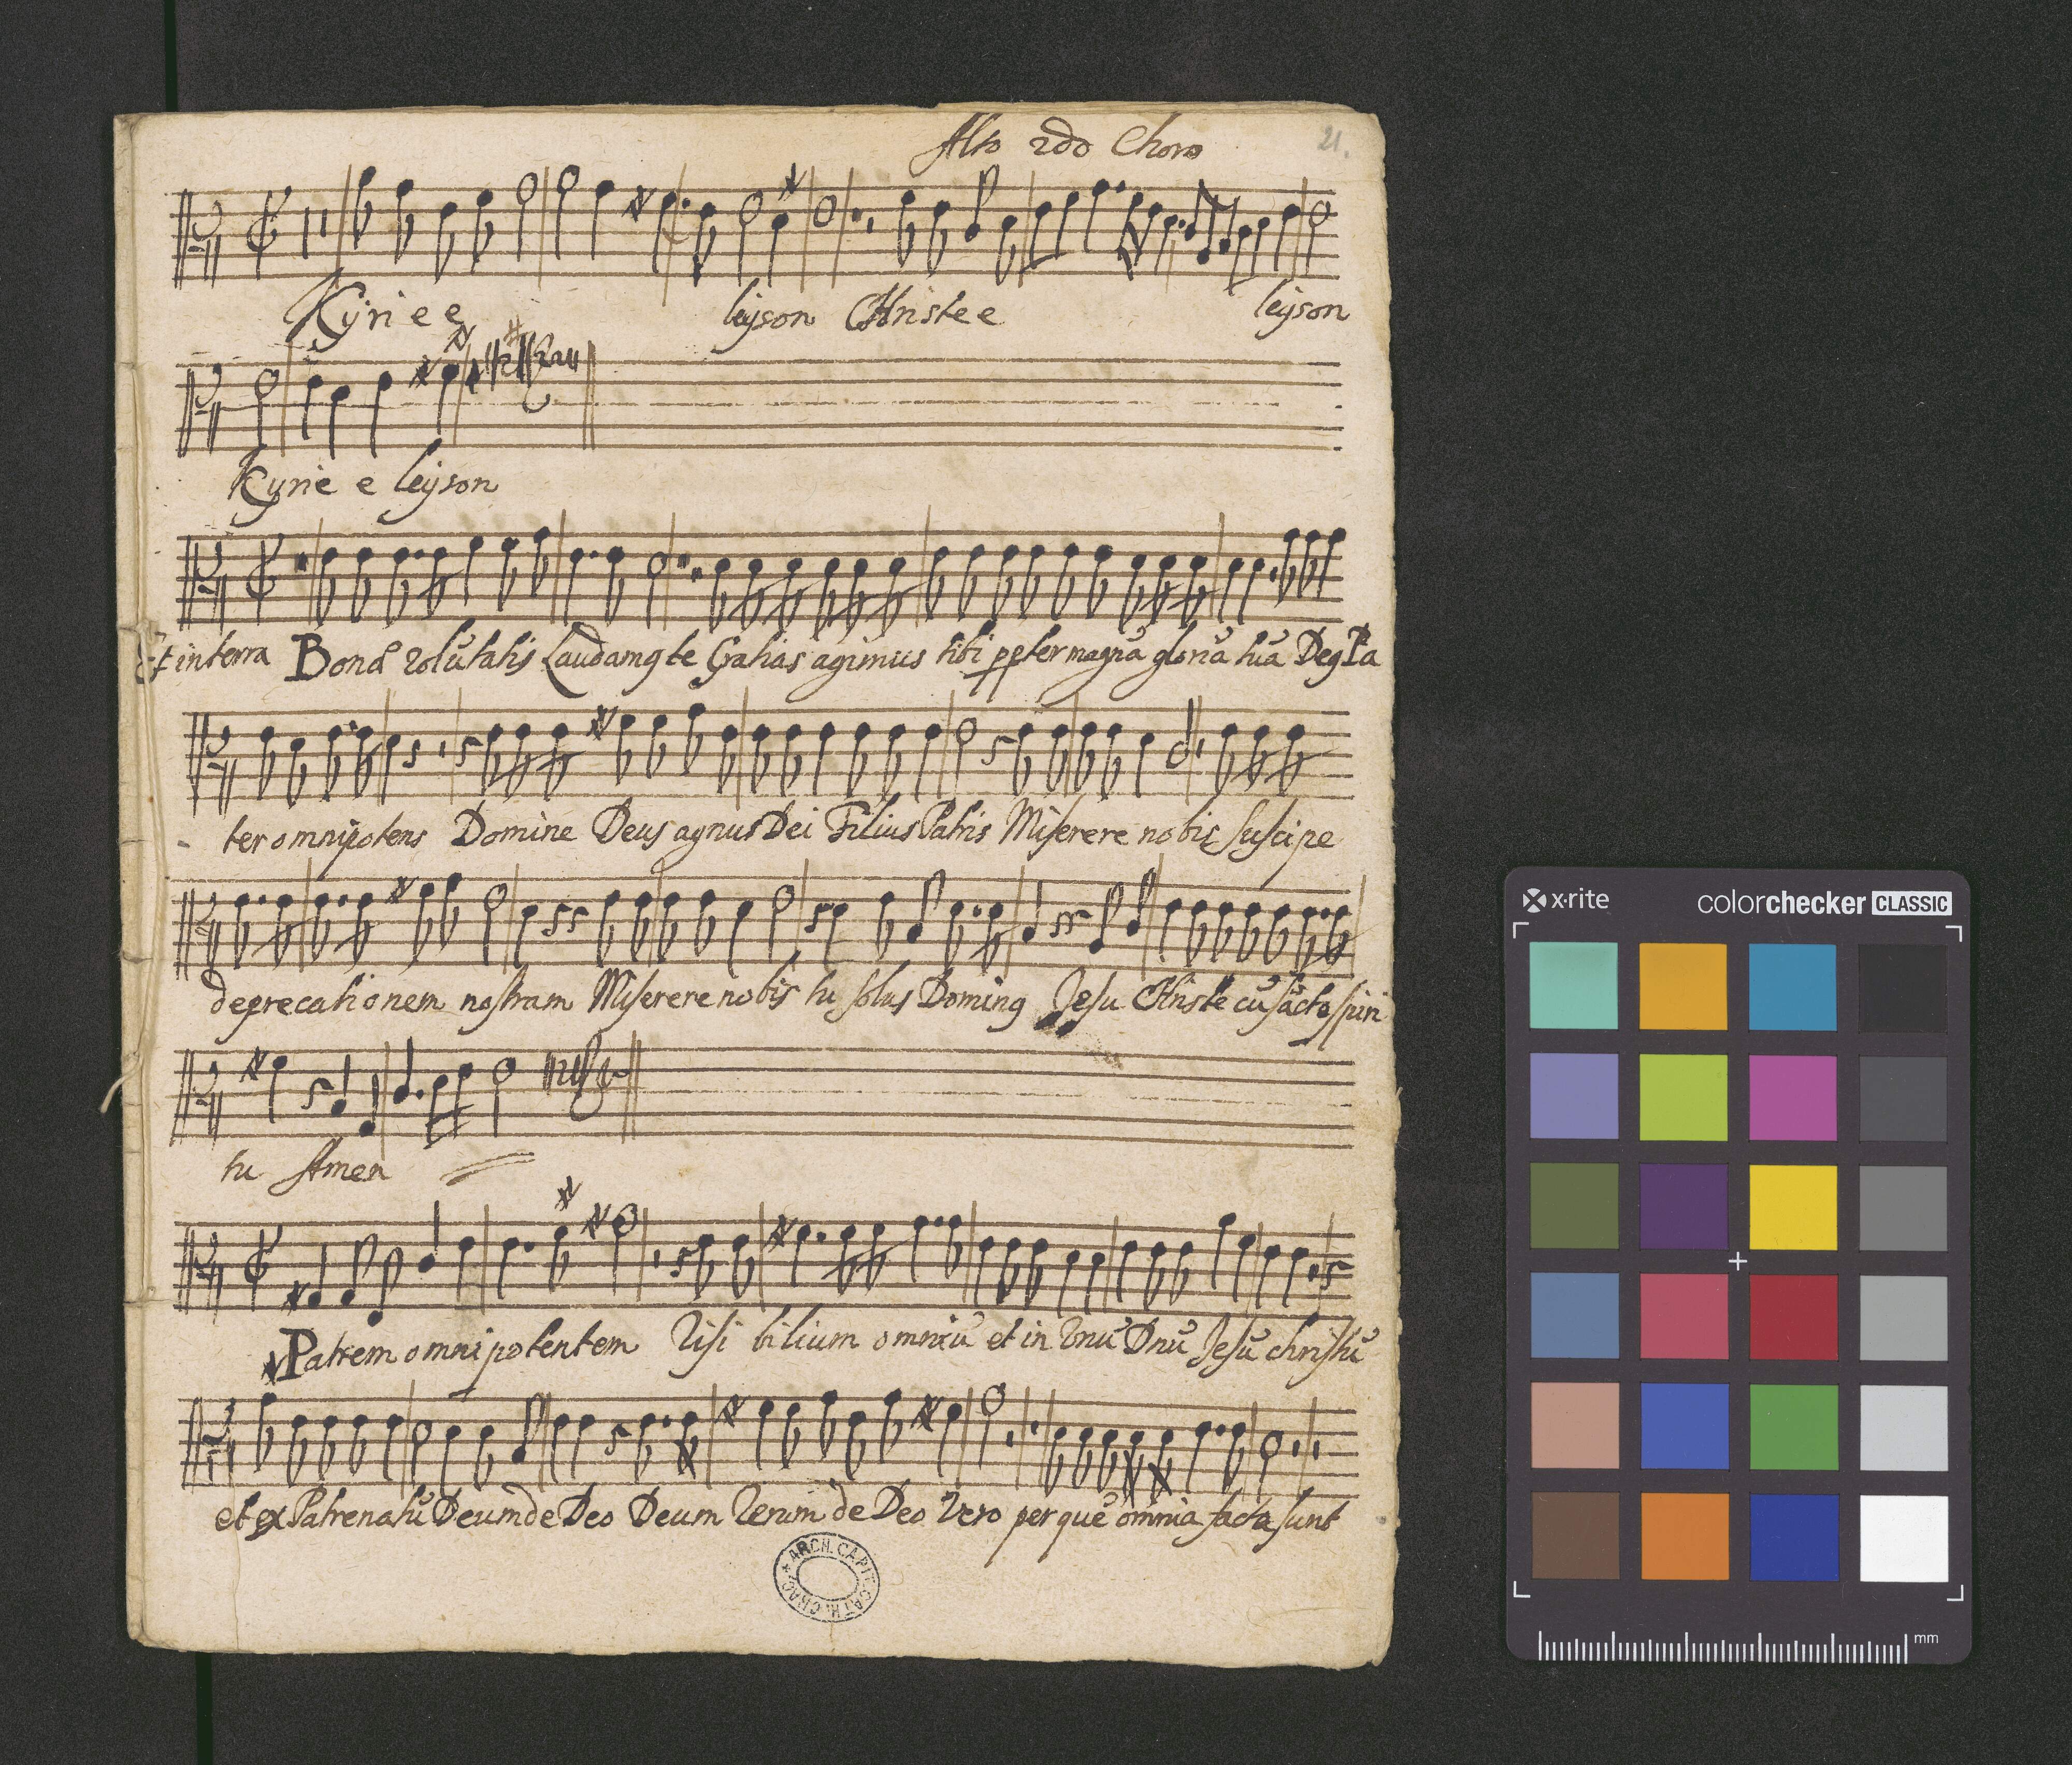 Alto 2do Choro
21.
Kyri e e leyson Christe e leyson
Kyrie e leyson
Et in terra Bonæ volũtatis Laudamg te Gratias agimus tibi ppter magnã gloriã tuã Deg Pa
ter omnipotens Domine Deus agnus Dei Filius Patris Miserere nobis suscipe
deprecationem nostram Miserere nobis tu solus Doming Jesu Christe cũ sãcto spiri
tu Amen
Patrem omnipotentem Visi bilium omniũ et in Vnũ Dnũ Jesũ christũ
et ex Patre natũ Deum de Deo Deum Verum de Deo Vero per quẽ omnia facta sunt
ARCH. CAPIT. CATH. CRAC.
x·rite colorchecker CLASSIC
mm